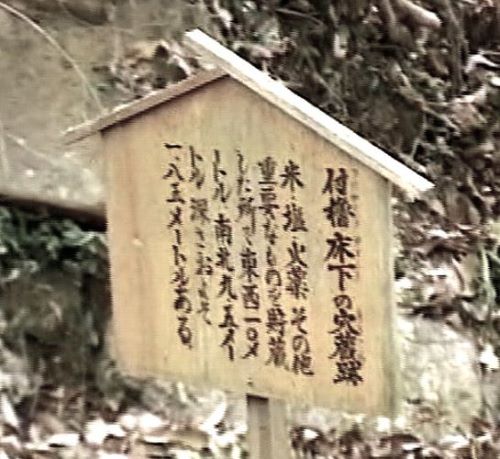 付櫓床下の穴蔵跡
米・塩・火薬その他
重要なものを貯蔵
した所で東西一〇メ
ートル、南北九・五メー
トル、深さおよそ
一・八五メートルある。